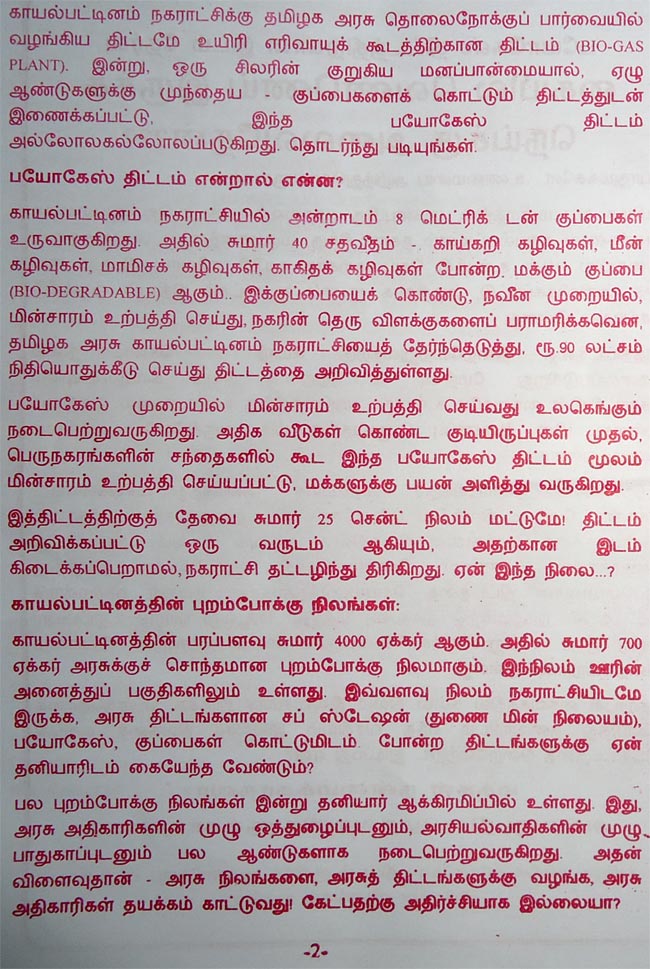 காயல்பட்டினம் நகராட்சிக்கு தமிழக அரசு தொலைநோக்குப் பார்வையில்
வழங்கிய திட்டமே உயிரி எரிவாயுக் கூடத்திற்கான திட்டம் (BIO-GAS
PLANT). இன்று, ஒரு சிலரின் குறுகிய மனப்பான்மையால், ஏழு
ஆண்டுகளுக்கு முந்தைய - குப்பைகளைக் கொட்டும் திட்டத்துடன்
இணைக்கப்பட்டு, இந்த பயோகேஸ் திட்டம்
அல்லோலகல்லோலப்படுகிறது. தொடர்ந்து படியுங்கள்.
பயோகேஸ் திட்டம் என்றால் என்ன?
காயல்பட்டினம் நகராட்சியில் அன்றாடம் 8 மெட்ரிக் டன் குப்பைகள்
உருவாகுகிறது. அதில் சுமார் 40 சதவீதம் - காய்கறி கழிவுகள், மீன்
கழிவுகள், மாமிசக் கழிவுகள், காகிதக் கழிவுகள் போன்ற, மக்கும் குப்பை
(BIO-DEGRADABLE) ஆகும்.. இக்குப்பையைக் கொண்டு, நவீன முறையில்,
மின்சாரம் உற்பத்தி செய்து, நகரின் தெரு விளக்குகளைப் பராமரிக்கவென,
தமிழக அரசு காயல்பட்டினம் நகராட்சியைத் தேர்ந்தெடுத்து, ரூ.90 லட்சம்
நிதியொதுக்கீடு செய்து திட்டத்தை அறிவித்துள்ளது.
பயோகேஸ் முறையில் மின்சாரம் உற்பத்தி செய்வது உலகெங்கும்
நடைபெற்றுவருகிறது. அதிக வீடுகள் கொண்ட குடியிருப்புகள் முதல்,
பெருநகரங்களின் சந்தைகளில் கூட இந்த பயோகேஸ் திட்டம் மூலம்
மின்சாரம் உற்பத்தி செய்யப்பட்டு, மக்களுக்கு பயன் அளித்து வருகிறது.
இத்திட்டத்திற்குத் தேவை சுமார் 25 சென்ட் நிலம் மட்டுமே! திட்டம்
அறிவிக்கப்பட்டு ஒரு வருடம் ஆகியும், அதற்கான இடம்
கிடைக்கப்பெறாமல், நகராட்சி தட்டழிந்து திரிகிறது. ஏன் இந்த நிலை...?
காயல்பட்டினத்தின் புறம்போக்கு நிலங்கள்:
காயல்பட்டினத்தின் பரப்பளவு சுமார் 4000 ஏக்கர் ஆகும். அதில் சுமார் 700
ஏக்கர் அரசுக்குச் சொந்தமான புறம்போக்கு நிலமாகும். இந்நிலம் ஊரின்
அனைத்துப் பகுதிகளிலும் உள்ளது. இவ்வளவு நிலம் நகராட்சியிடமே
இருக்க, அரசு திட்டங்களான சப் ஸ்டேஷன் (துணை மின் நிலையம்),
பயோகேஸ், குப்பைகள் கொட்டுமிடம் போன்ற திட்டங்களுக்கு ஏன்
தனியாரிடம் கையேந்த வேண்டும்?
பல புறம்போக்கு நிலங்கள் இன்று தனியார் ஆக்கிரமிப்பில் உள்ளது. இது,
அரசு அதிகாரிகளின் முழு ஒத்துழைப்புடனும், அரசியல்வாதிகளின் முழு
பாதுகாப்புடனும் பல ஆண்டுகளாக நடைபெற்றுவருகிறது. அதன்
விளைவுதான் - அரசு நிலங்களை, அரசுத் திட்டங்களுக்கு வழங்க, அரசு
அதிகாரிகள் தயக்கம் காட்டுவது! கேட்பதற்கு அதிர்ச்சியாக இல்லையா?
-2-